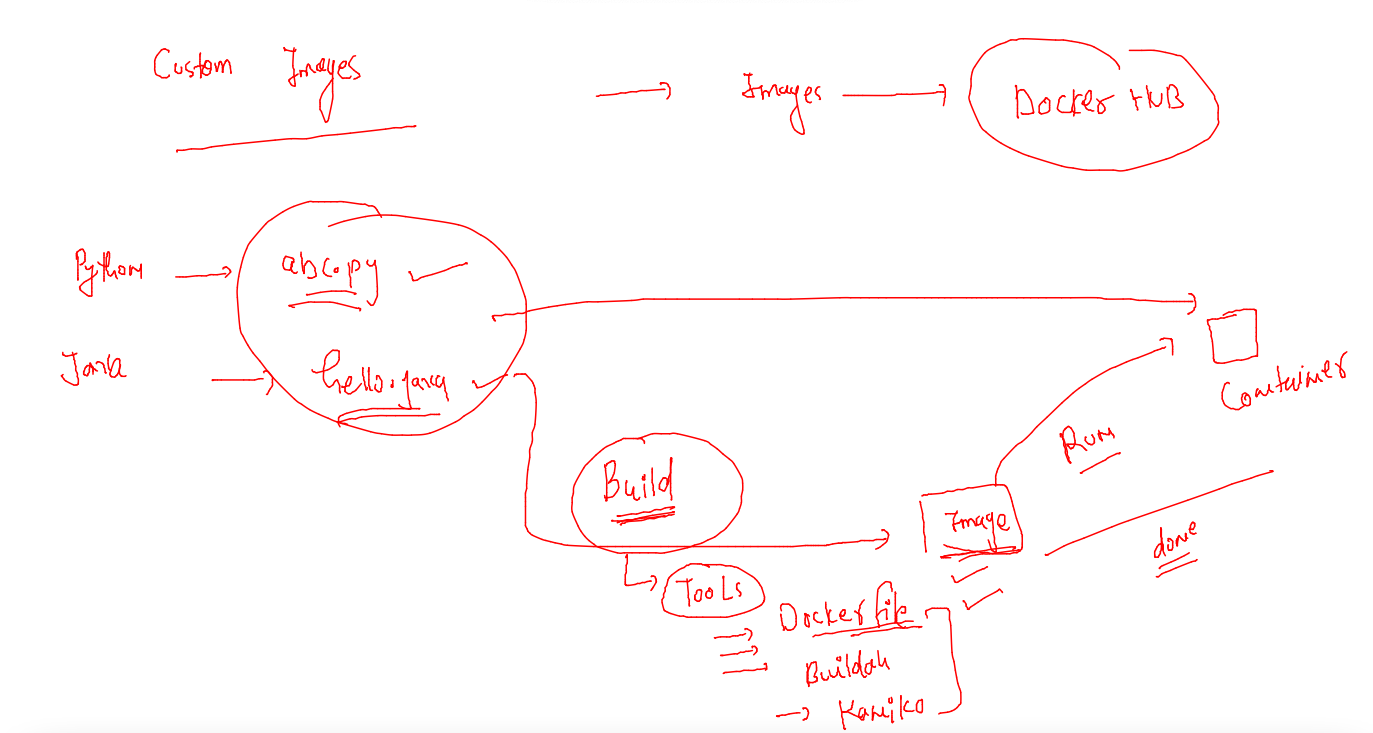 Custom Images
Images
Docker HUB
Python
abc.py
Java
hello.java
Container
Run
Build
Image
done
Tools
Dockerfile
Buildah
Kaniko